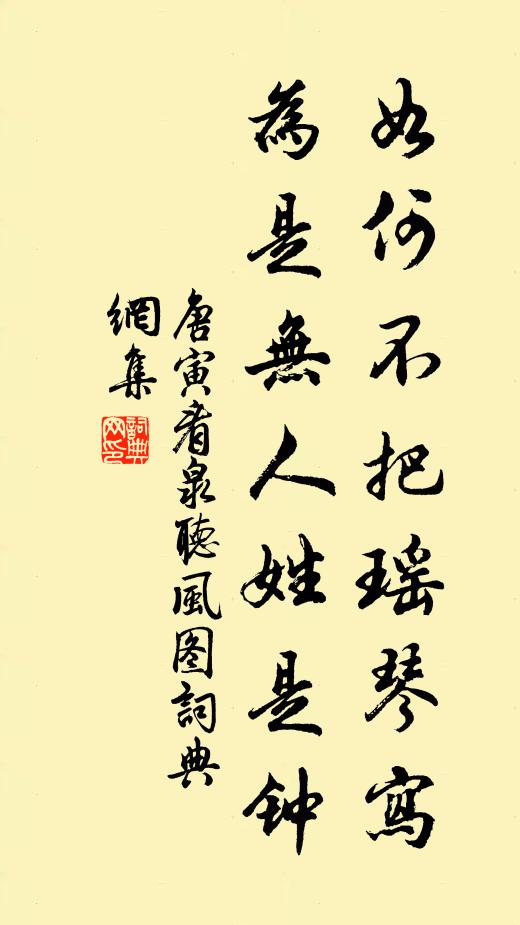 如何不把瑶琴寫
為是無人姓是钟
唐寅看泉聽風图詞典
網集
詞典
网印